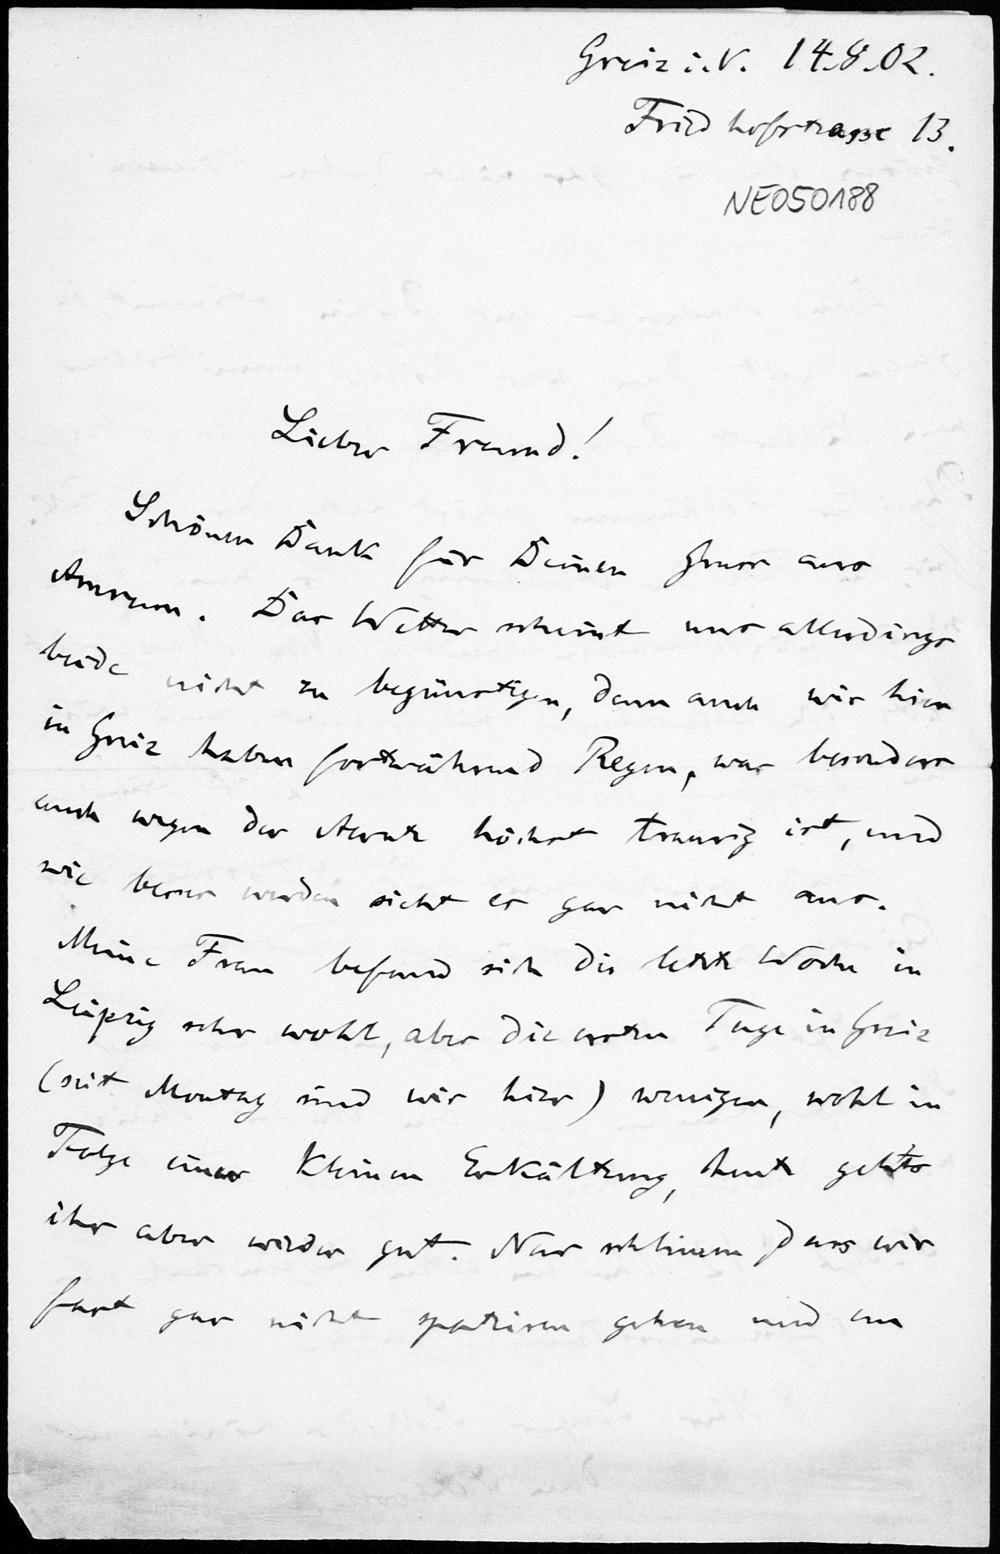 Greiz i. V. 14.8.02.
Friedhofstrasse 13.
NE050188
Lieber Freund!
Schönen Dank für Deinen Gruss aus
Amrum. Das Wetter scheint uns allerdings
beide nicht zu begünstigen, denn auch wir hier
in Greiz haben fortwährend Regen, was besonders
auch wegen der Aernte höchst traurig ist, und
wie besser werden sieht es gar nicht aus.
Meine Frau befand sich die letzte Woche in
Leipzig sehr wohl, aber die ersten Tage in Greiz
(seit Montag sind wir hier) weniger, wohl in
Folge einer kleinen Erkältung, heute gehts
ihr aber wieder gut. Nur schlimm dass wir
fast gar nicht spaziren gehen und an